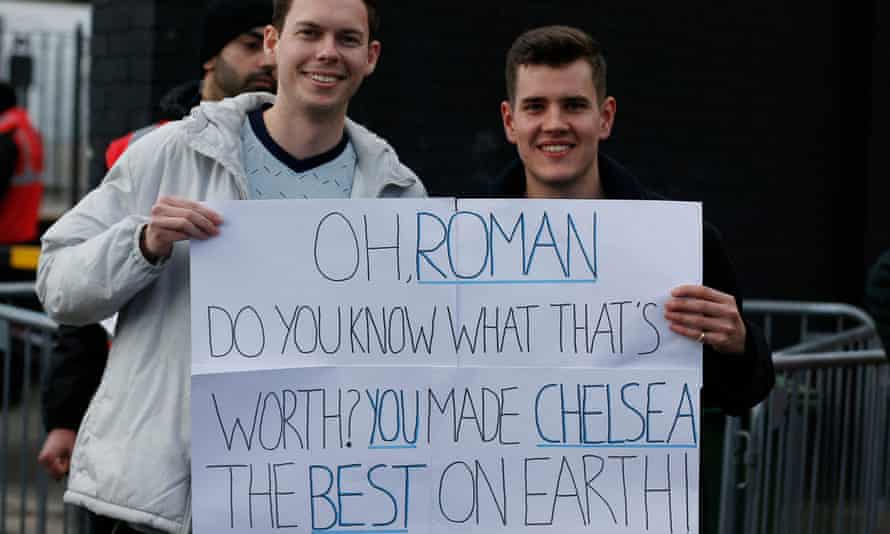 OH, ROMAN
DO YOU KNOW WHAT THAT'S
WORTH? YOU MADE CHELSEA
THE BEST ON EARTH!